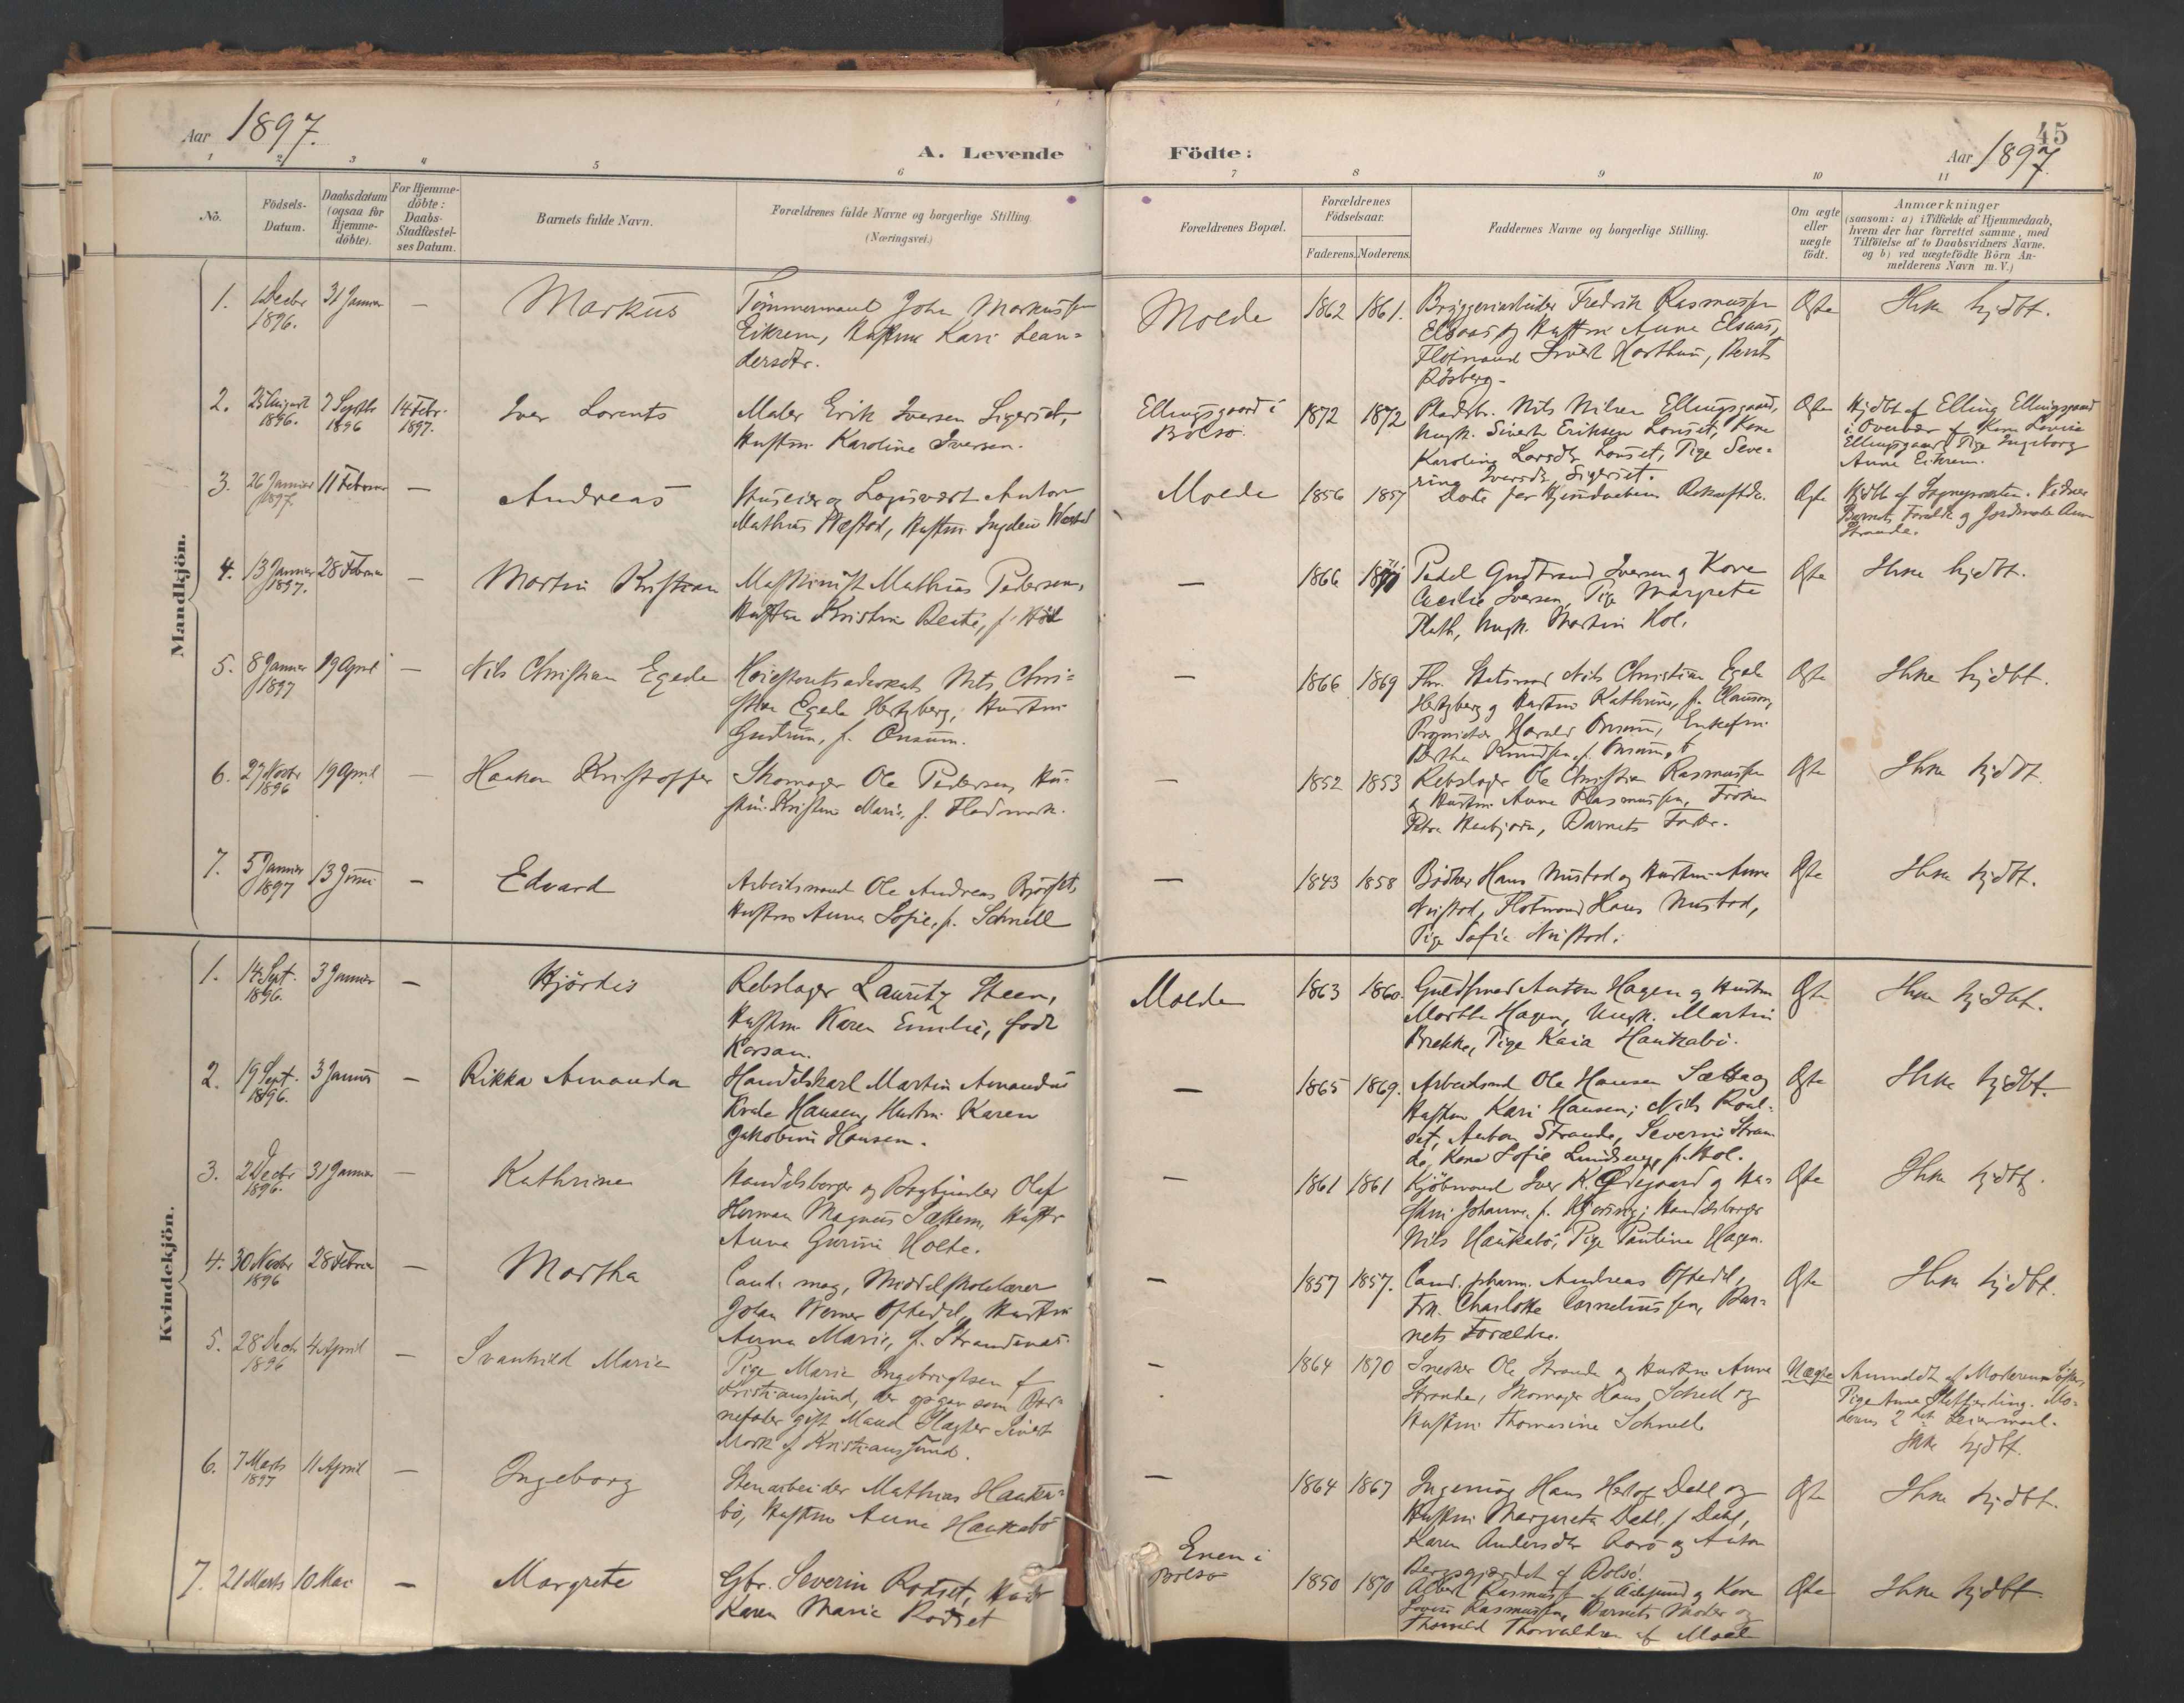 Aar 1897.
A. Levende Födte:
Aar 1897.
45
1 2 3 4 5 6 7 8 9 10 11
No.
Födsels-
Datum.
Daabsdatum
(ogsaa for
Hjemme-
döbte).
For Hjemme-
döbte:
Daabs-
Stadfæstel-
ses Datum.
Barnets fulde Navn.
Forældrenes fulde Navne og borgerlige Stilling.
(Næringsvei.)
Forældrenes Bopæl.
Forældrenes
Födselsaar.
Faderens. Moderens.
Faddernes Navne og borgerlige Stilling.
Om ægte
eller
uægte
födt.
Anmærkninger
(saasom: a) i Tilfælde af Hjemmedaab,
hvem der har forrettet samme, med
Tilföielse af to Daabsvidners Navne.
og b) ved uægtefödte Börn An-
melderens Navn m. V.)
Mandkjön.
1.
1 Decbr
1896.
31 Januar
—
Markus
Tömmermand John Markussen
Eikrem, Hustru Kari Lean-
dersdtr.
Molde
1862 1861.
Bryggeriarbeider Fredrik Rasmussen
Elsaas og Hustru Anne Elsaas,
Flötmand Sivert Horsthun, Bernt
Rösberg.
Ægte
Ikke hjdbt.
2.
25 August
1896.
7 Septbr
1896
14 Febr.
1897.
Iver Lorents
Maler Erik Iversen Sigerset,
Hustru Karoline Iversen.
Ellingsgaard i
Bolsö.
1872 1872
Pladsbr. Nils Nilsen Ellingsgaard,
Ungk. Sivert Eriksen Lonset, Kone
Karoline Larsdtr Lonset, Pige Seve-
rine Iversdtr Sigerset.
Ægte
Hjdbt af Elling Ellingsgaard
i Overvær af Kone Lovise
Ellingsgaard, Pige Ingeborg
Anne Eikrem.
3.
26 Januar
1897.
11 Februar
—
Andreas
Huseier og Logivært Anton
Mathias Wæstad, Hustru
Molde
1856 1857
Döde før
Ægte
Hjdbt af Sognepresten. Vidner
Barnets Forældre og Jordmoder Anne
Strande.
4.
13 Januar
1897.
28 Februar
—
Martin Kristian
Maskinist Mathias Pedersen,
Hustru Kristine Beate, f. Hol
—
1866
Pedel Gudbrand Iversen og Kone
Cecilie Iversen, Pige Margrete
Plath, Ungk. Martin Hol.
Ægte
Ikke hjdbt.
5.
8 Januar
1897
19 April
—
Nils Christian Egede
Höiesteretsadvokat Nils Chri-
stian Egede Hertzberg, Hustru
Gudrun, f. Onsum.
—
1866 1869
Fhv. Statsraad Nils Christian Egede
Hertzberg og Hustru Kathrine, f. Clauson,
Proprietær Harald Onsum, Enkefru
Berthe Knudsen f. Onsum
Ægte
Ikke hjdbt.
6.
27 Novbr
1896
19 April
—
Haakon Kristoffer
Skomager Ole Pedersen, Hu-
stru Kristine Marie, f. Fladmark.
—
1852 1853
Rebslager Ole Christian Rasmussen
og Hustru Anne Rasmussen, Fröken
Petra Haabjörn, Barnets Fader.
Ægte
Ikke hjdbt.
7.
5 Januar
1897
13 Juni
—
Edvard
Arbeidsmand Ole Andreas
Hustru Anne Sofie, f. Schnell
—
1843 1858
Bödker Hans Nustad og Hustru Anne
Nustad, Flotmand Hans Nustad,
Pige Sofie Nustad.
Ægte
Ikke hjdbt.
Kvindekjön.
1.
14 Sept.
1896.
3 Januar
—
Hjördis
Rebslager Lauritz Steen,
Hustru Karen Emilie, född
Korsan.
Molde
1863 1860.
Guldsmed Anton Hagen og Hustru
Marthe Hagen, Ungk. Martin
Brekke, Pige Kaia Haukabö.
Ægte
Ikke hjdbt.
2.
19 Sept.
1896.
3 Januar
—
Rikka Amanda
Handelskarl Martin Amandus
Hansen, Hustru Karen
Jakobine Hansen.
—
1865 1869.
Arbeidsmd Ole Hansen Sælta og
Hustru Kari Hansen; Nils Roal-
set, Anton Strande, Severine Stran-
de, Kone Sofie Lundseng f. Hol.
Ægte
Ikke hjdbt.
3.
2 Decbr
1896.
31 Januar
—
Kathrine
Handelsborger og Bogbinder Olaf
Herman Magnus Sættem, Hustr
Anna Gurine Holte.
—
1861 1861
Kjöbmand Iver K. Ödegaard og Hu-
stru Johanne, f. Kjöring; Handelsborger
Nils Haukabö, Pige Pauline Hagen.
Ægte
Ikke hjdbt.
4.
30 Novbr
1896
28 Februar
—
Martha
Cand. mag, Middelskolelærer
Johan Werner Oftedal, Hustru
Anna Marie, f. Strandenæs.
—
1857 1857.
Cand. pharm. Andreas Oftedal,
Frk. Charlotte Corneliussen, Bar-
nets Forældre.
Ægte
Ikke hjdbt.
5.
28 Decbr
1896
4 April
—
Svanhild Marie
Pige Marie Ingebrigtsen f
Kristianssund, der opgav som Bar-
nefader gift Mand Slagter Sivert
Mork af Kristianssund.
—
1864 1870
Snedker Ole Strande og Hustru Anne
Strande, Skomager Hans Schnell og
Hustru Thomasine Schnell
Uægte
Anmeldt af Moderens Söster,
Pige Anne . Mo-
derens 2det Leiermaal.
Ikke hjdbt.
6.
7 Marts
1897
11 April
—
Ingeborg
Stenarbeider Mathias Hauka-
bö, Hustru Anne Haukabö
—
1864 1867
Ingeniör Hans Herlof Dahl og
Hustru Margrete Dahl, f Dahl,
Karen Andersdtr Rorö og Anton
Bergsgjærdet af Bolsö.
Ægte
Ikke hjdbt.
7.
21 Marts
10 Mai
—
Margrete
Gbr. Severin Rodset, Hustr
Karen Marie Rodset
Enen i
Bolsö
1850 1870
Albert Rasmussen af Aalesund og Kone
Lovise Rasmussen, Barnets Moder og
Thorvald Thorvaldsen af Molde
Ægte
Ikke hjdbt.